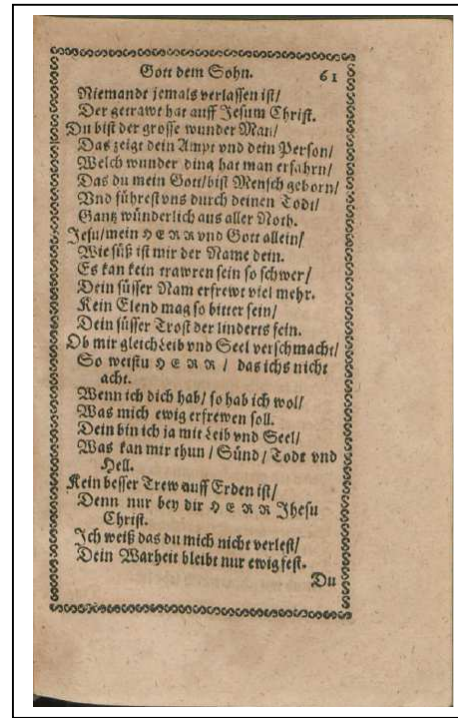 Gott dem Sohn. 61
Niemandt jemals verlassen ist/
Der getrawt hat auff Jesum Christ.
Du bist der grosse wunder Man/
Das zeigt dein Ampt vnd dein Person/
Welch wunder ding hat man erfahrn/
Das du mein Gott/bist Mensch geborn/
Vnd führest vns durch deinen Todt/
Gantz wünderlich aus aller Noth.
Jesu/mein HERR vnd Gott allein/
Wie süß ist mir der Name dein.
Es kan kein trawren sein so schwer/
Dein süsser Nam erfrewt viel mehr.
Kein Elend mag so bitter sein/
Dein süsser Trost der linderts fein.
Ob mir gleich Leib vnd Seel verschmacht/
So weistu HERR / das ichs nicht
acht.
Wenn ich dich hab/ so hab ich wol/
Was mich ewig erfrewen soll.
Dein bin ich ja mit Leib vnd Seel/
Was kan mir thun / Sünd / Todt vnd
Hell.
Kein besser Trew auff Erden ist/
Denn nur bey dir HERR Jhesu
Christ.
Ich weiß das du mich nicht verlest/
Dein Warheit bleibt nur ewig fest.
Du